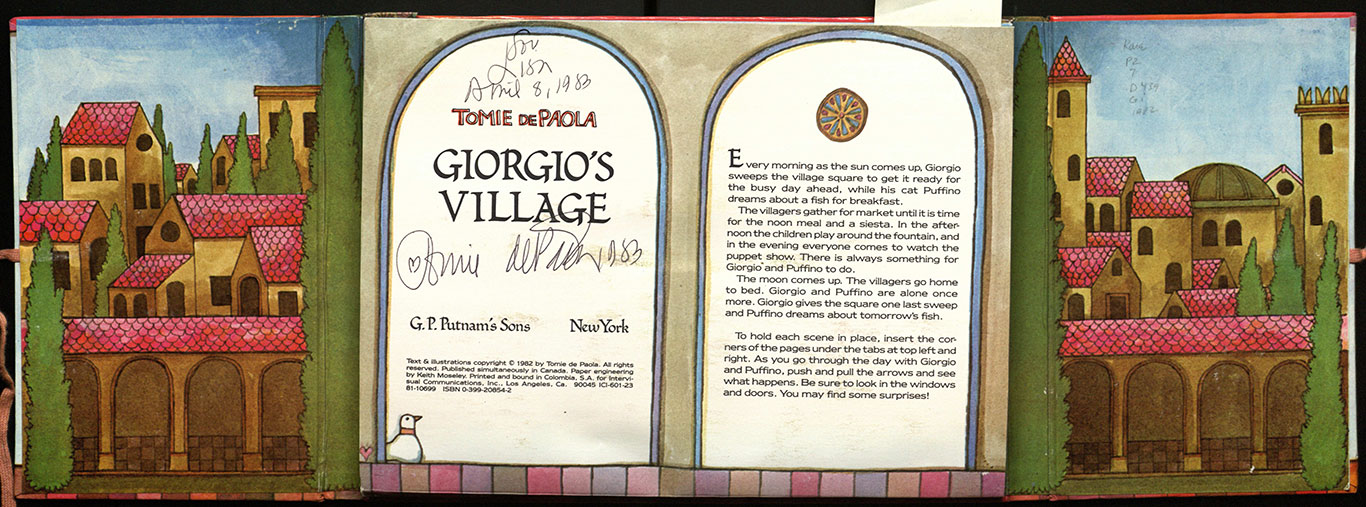 For
Lisa
April 8, 1983
TOMIE DE PAOLA
GIORGIO'S
VILLAGE
Tomie dePaola 1983
G. P. Putnam's Sons New York
Text & illustrations copyright © 1982 by Tomie de Paola. All rights
reserved. Published simultaneously in Canada. Paper engineering
by Keith Moseley. Printed and bound in Colombia, S.A. for Intervi-
sual Communications, Inc., Los Angeles, Ca. 90045 ICI-601-23
81-10699 ISBN 0-399-20854-2
Every morning as the sun comes up, Giorgio
sweeps the village square to get it ready for
the busy day ahead, while his cat Puffino
dreams about a fish for breakfast.
The villagers gather for market until it is time
for the noon meal and a siesta. In the after-
noon the children play around the fountain, and
in the evening everyone comes to watch the
puppet show. There is always something for
Giorgio and Puffino to do.
The moon comes up. The villagers go home
to bed. Giorgio and Puffino are alone once
more. Giorgio gives the square one last sweep
and Puffino dreams about tomorrow's fish.
To hold each scene in place, insert the cor-
ners of the pages under the tabs at top left and
right. As you go through the day with Giorgio
and Puffino, push and pull the arrows and see
what happens. Be sure to look in the windows
and doors. You may find some surprises!
Rare
PZ
7
D439
Gi
1982